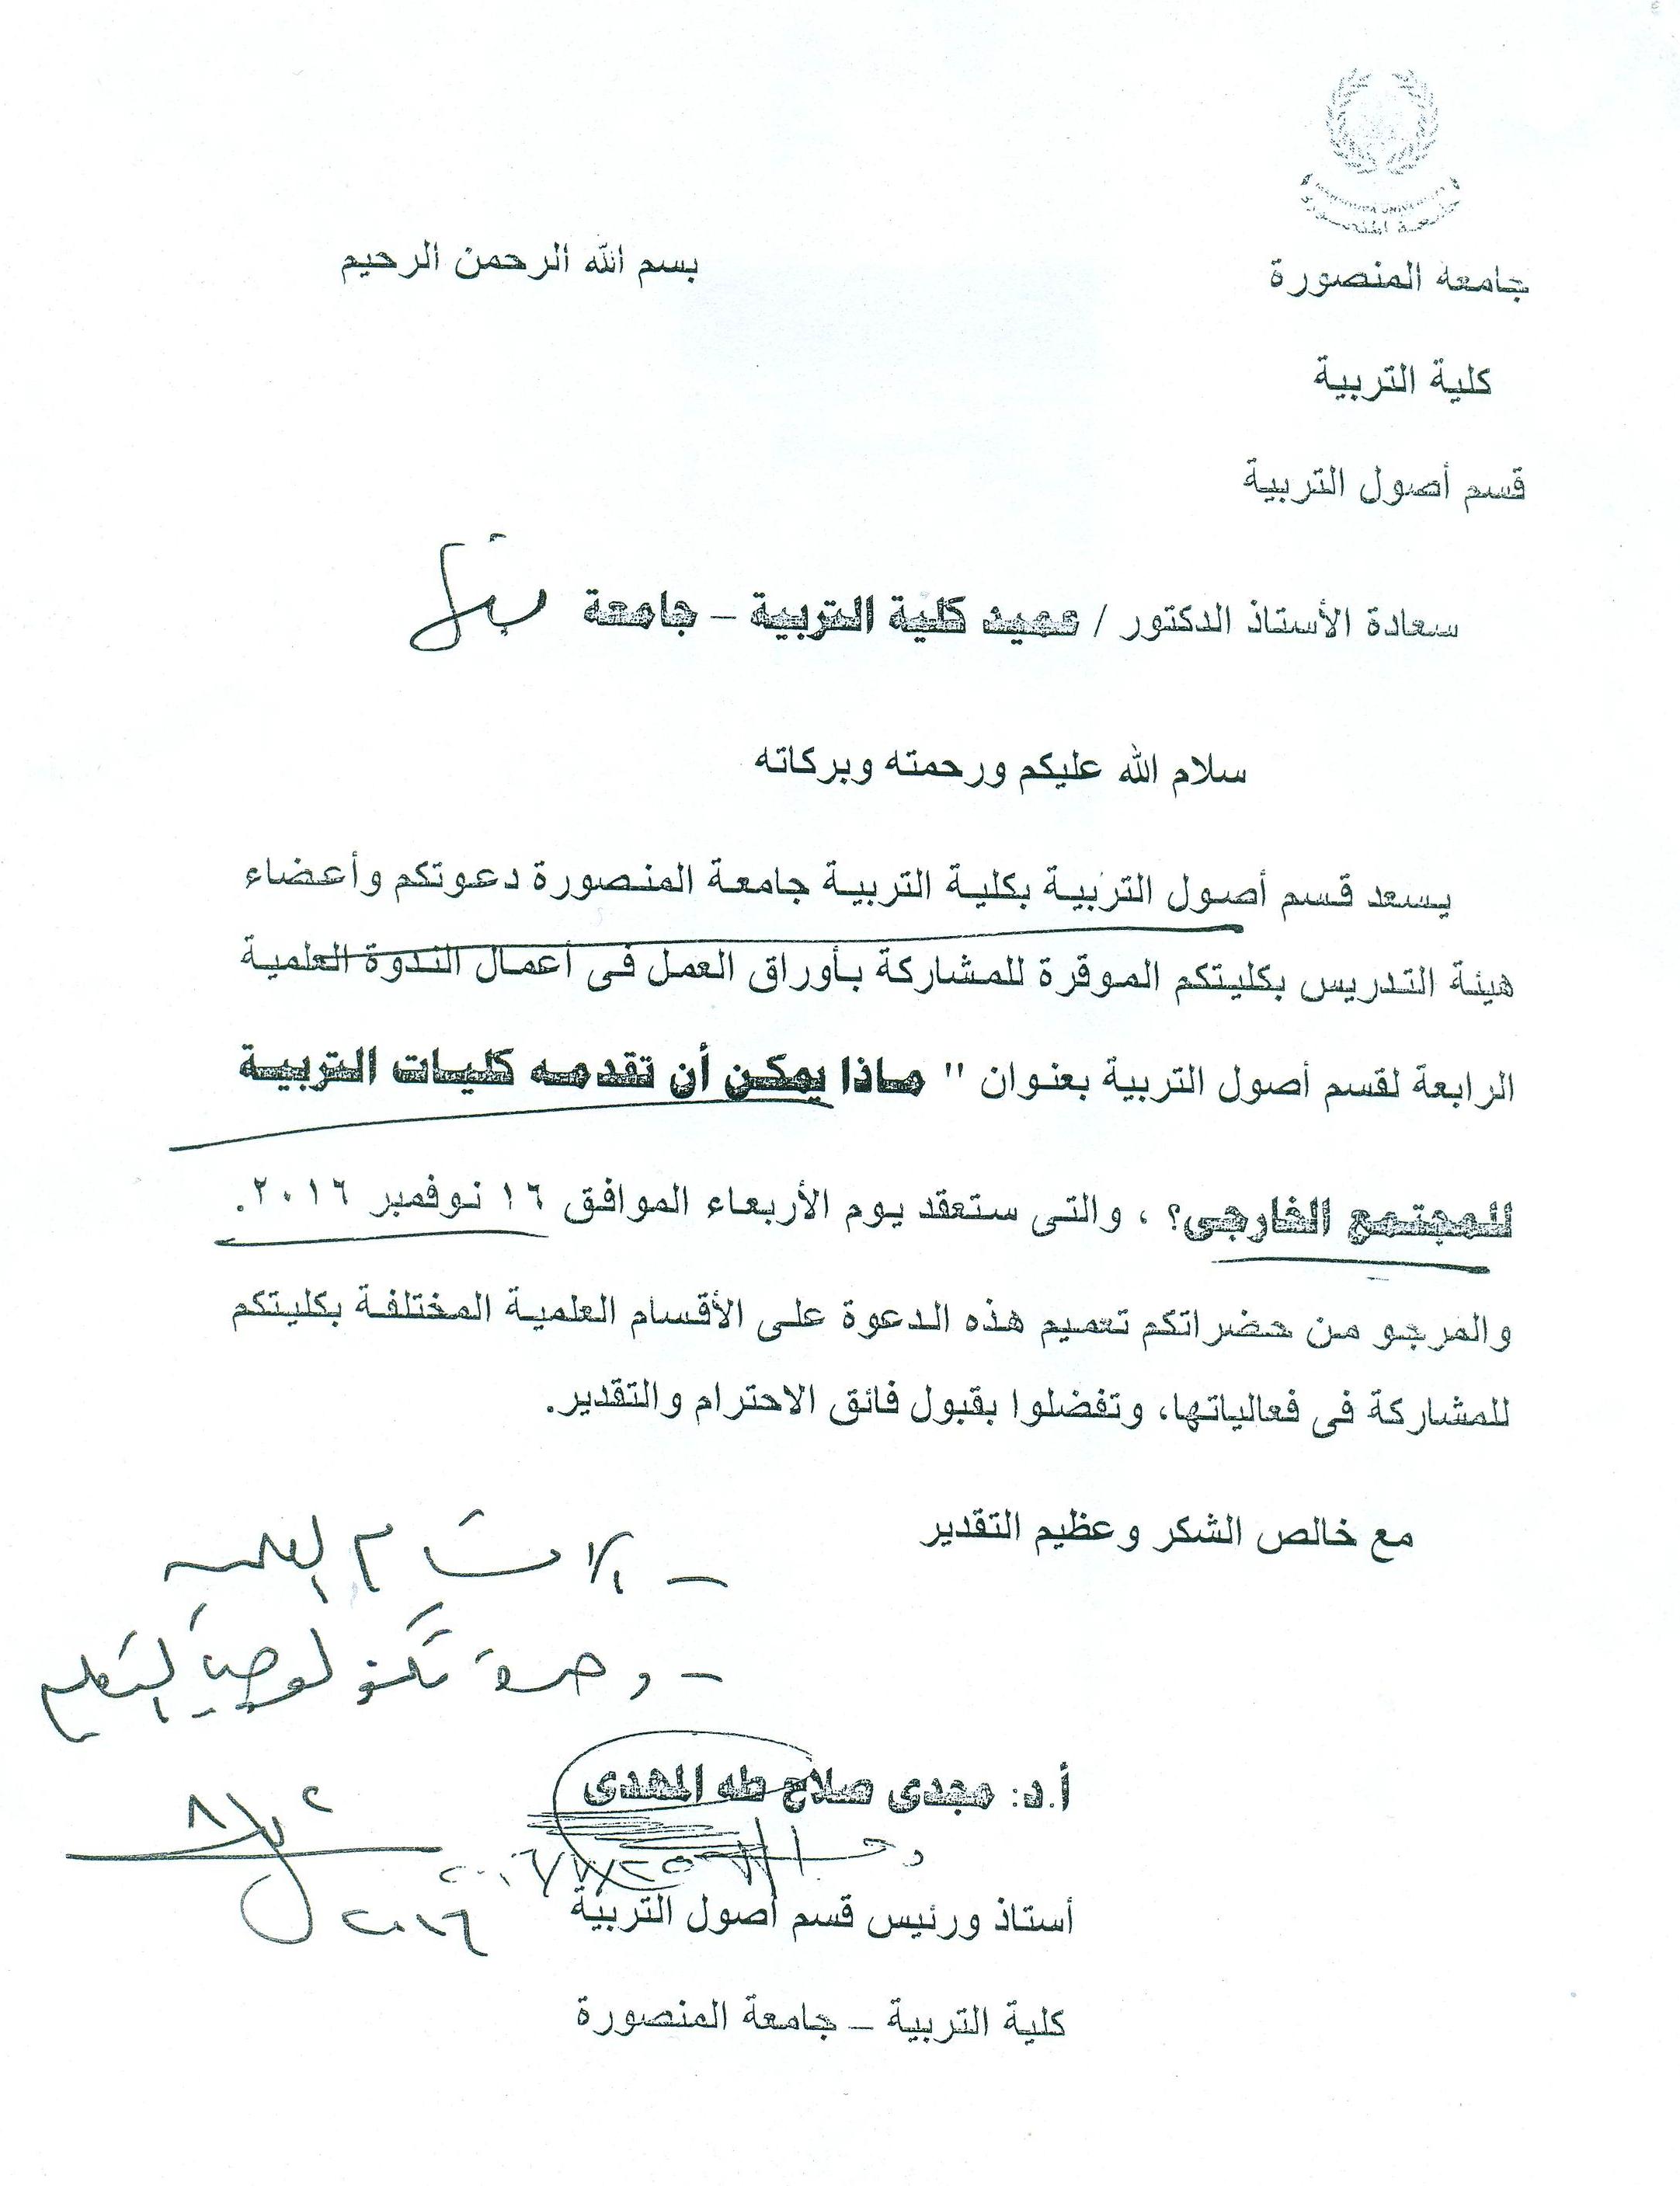 MANSOURA UNIVERSITY
جامعة المنصورة
بسم الله الرحمن الرحيم
جامعة المنصورة
كلية التربية
قسم أصول التربية
سعادة الأستاذ الدكتور / عميد كلية التربية – جامعة بنها
سلام الله عليكم ورحمته وبركاته
يسعد قسم أصول التربية بكلية التربية جامعة المنصورة دعوتكم وأعضاء
هيئة التدريس بكليتكم الموقرة للمشاركة بأوراق العمل فى أعمال الندوة العلمية
الرابعة لقسم أصول التربية بعنوان " ماذا يمكن أن تقدمه كليات التربية
للمجتمع الخارجى؟ ، والتى ستعقد يوم الأربعاء الموافق ١٦ نوفمبر ٢٠١٦.
والمرجو من حضراتكم تعميم هذه الدعوة على الأقسام العلمية المختلفة بكليتكم
للمشاركة فى فعالياتها، وتفضلوا بقبول فائق الاحترام والتقدير.
مع خالص الشكر وعظيم التقدير
– الأقسام العلمية
– وحدة تكنولوجيا التعليم
أ.د: مجدى صلاح طه المهدى
٢٠١٦
أستاذ ورئيس قسم أصول التربية
كلية التربية – جامعة المنصورة